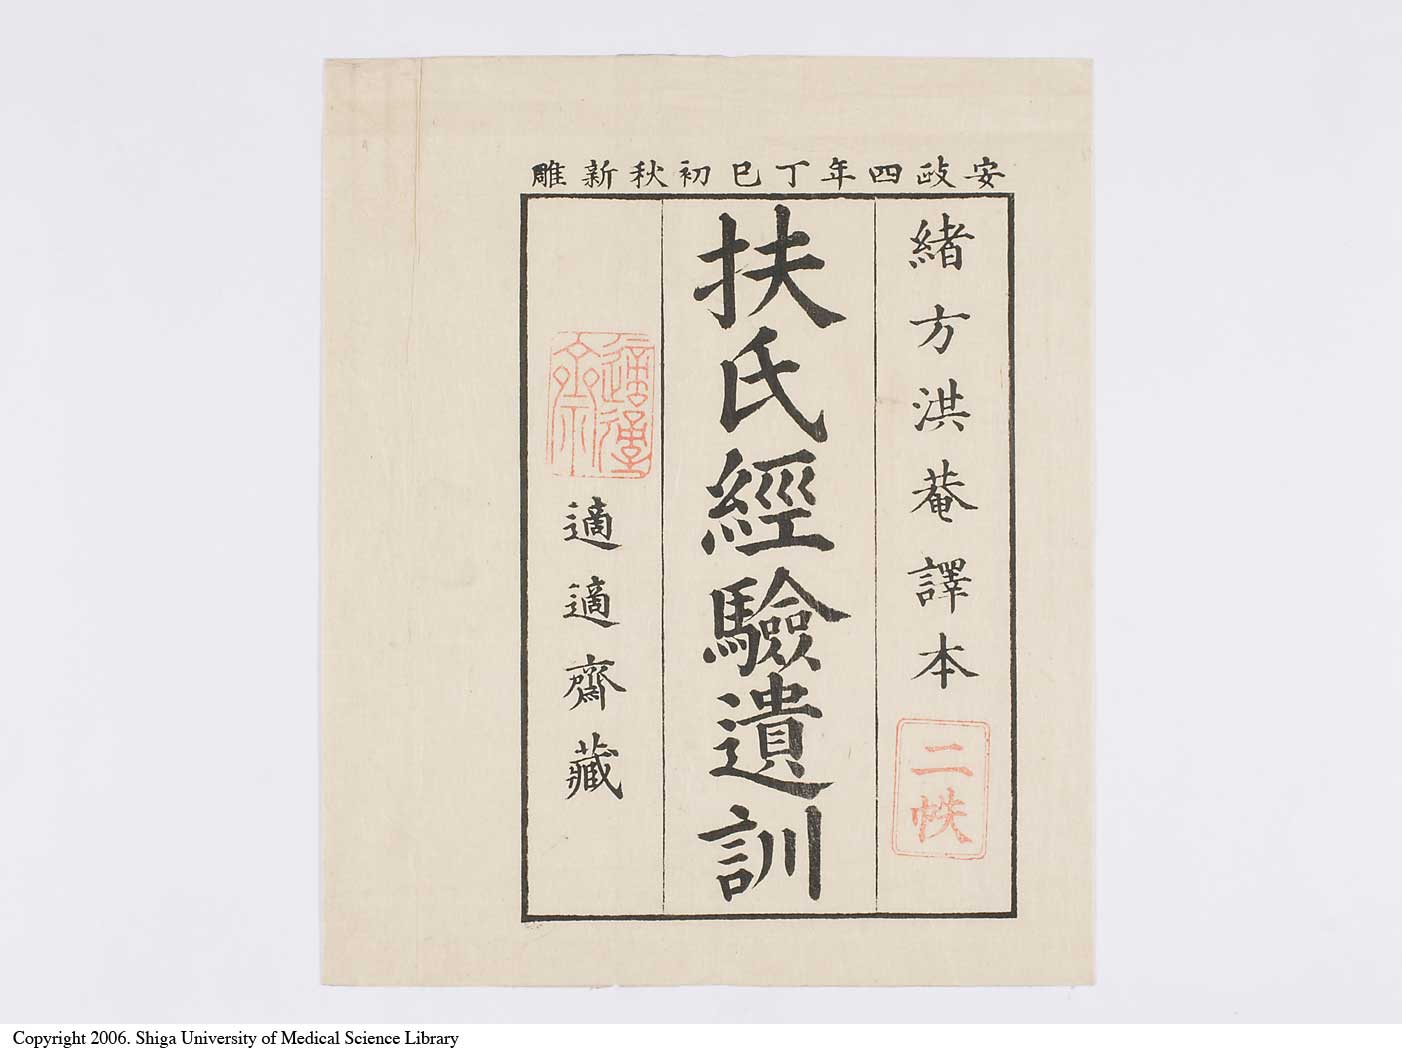 安政四年丁巳初秋新雕
緒方洪菴譯本
二帙
扶氏經驗遺訓
適適齋
適適齋藏
Copyright 2006. Shiga University of Medical Science Library